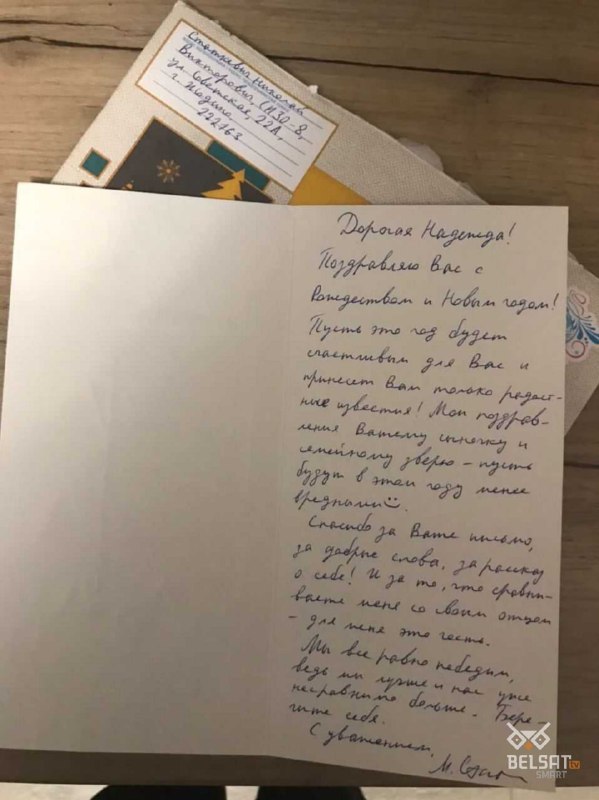 Статкевич Николай
Викторович, СИЗО-8,
ул. Советская, 22А,
г. Жодино
222163
Дорогая Надежда!
Поздравляю Вас с
Рождеством и Новым годом!
Пусть это год будет
счастливым для Вас и
принесет Вам только радост-
ные известия! Мои поздрав-
ления Вашему сыночку и
семейному зверю – пусть
будут в этом году менее
вредными
Спасибо за Ваше письмо,
за добрые слова, за рассказ
о себе! И за то, что сравни-
ваете меня со своим отцом
– для меня это честь.
Мы все равно победим,
ведь мы лучше и нас уже
несравнимо больше. Бере-
гите себя.
С уважением,
М.
BELSAT tv
SMART